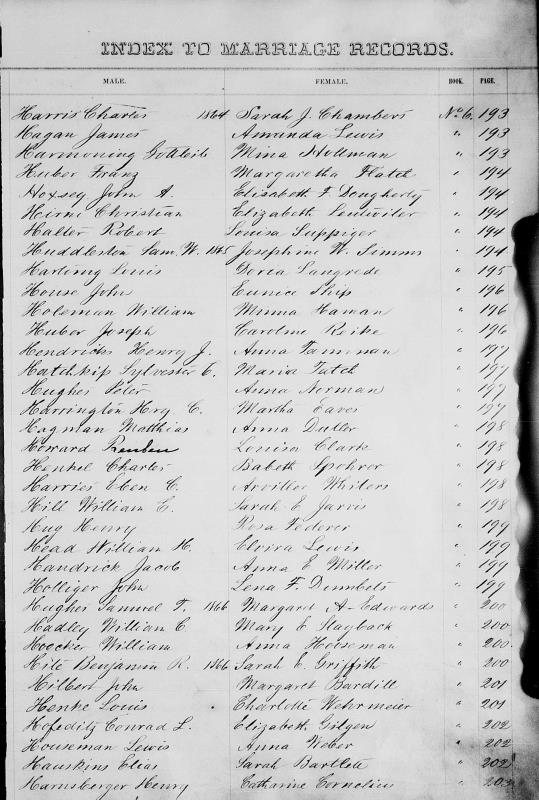 INDEX TO MARRIAGE RECORDS.
MALE. FEMALE. BOOK. PAGE.
Harris Charles 1864 Sarah J. Chambers No 6. 193
Hagan James Amanda Lewis " 193
Harmoning Gottleib Mina Holtman " 193
Huber Franz Margaretha Flatch " 194
Hoxsey John A. Elisabeth F. Dougherty " 194
Hirni Christian Elizabeth Leutwiler " 194
Halter Robert Louisa Suppiger " 194
Huddleston Sam. W. 1865 Josephine W. Simms " 194
Hartung Louis Doria Langrede " 195
House John Eunice Ship " 196
Holeman William Minna Haman " 196
Huber Joseph Caroline Reike " 196
Hendricks Henry J. Anna " 197
Hatchkip Sylvester C. Maria Tatch " 197
Hughes Peter Anna Norman " 197
Harrington Hry. C. Martha Eaves " 197
Hagman Matthias Anna Duller " 198
Howard Reuben Louisa Clark " 198
Henkel Charles Babeth Spohrer " 198
Harries Eben C. Arvilla Whiters " 198
Hill William C. Sarah E. Jarris " 198
Hug Henry Rosa Federer " 199
Head William H. Elvira Lewis " 199
Handrick Jacob Anna E. Miller " 199
Holliger John Lena F. " 199
Hughes Samuel T. 1866 Margaret A. Edwards " 200
Hadley William C. Mary E. Slayback " 200
Hoecker William Anna Hooseman " 200
Hile Benjamin R. 1866 Sarah C. Griffith " 200
Hilbert John Margaret Bardill " 201
Henke Louis Charlotte Wehrmeier " 201
Hofeditz Conrad L. Elizabeth Gilgen " 202
Houseman Lewis Anna Weber " 202
Hauskins Elias Sarah Bartlett " 202
Harnsberger Henry Catharine Cornelius " 202